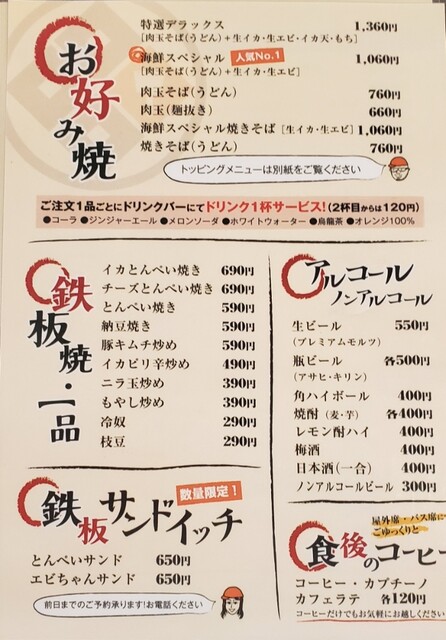 お好み焼
特選デラックス 1,360円
[肉玉そば(うどん)+生イカ・生エビ・イカ天・もち]
海鮮スペシャル 人気No.1 1,060円
[肉玉そば(うどん)+生イカ・生エビ]
肉玉そば(うどん) 760円
肉玉(麺抜き) 660円
海鮮スペシャル焼きそば [生イカ・生エビ] 1,060円
焼きそば(うどん) 760円
トッピングメニューは別紙をご覧ください
ご注文1品ごとにドリンクバーにてドリンク1杯サービス!(2杯目からは120円)
●コーラ ●ジンジャーエール ●メロンソーダ ●ホワイトウォーター ●烏龍茶 ●オレンジ100%
鉄板焼・一品
イカとんぺい焼き 690円
チーズとんぺい焼き 690円
とんぺい焼き 590円
納豆焼き 590円
豚キムチ炒め 590円
イカピリ辛炒め 490円
ニラ玉炒め 390円
もやし炒め 390円
冷奴 290円
枝豆 290円
アルコール
ノンアルコール
生ビール 550円
(プレミアムモルツ)
瓶ビール 各500円
(アサヒ・キリン)
角ハイボール 400円
焼酎(麦・芋) 各400円
レモン酎ハイ 400円
梅酒 400円
日本酒(一合) 400円
ノンアルコールビール 300円
鉄板サンドイッチ
数量限定!
とんぺいサンド 650円
エビちゃんサンド 650円
前日までのご予約承ります!お電話ください
屋外席・バス席に
ごゆっくりと
食後のコーヒー
コーヒー・カプチーノ
カフェラテ 各120円
コーヒーだけでもお気軽にお越しください